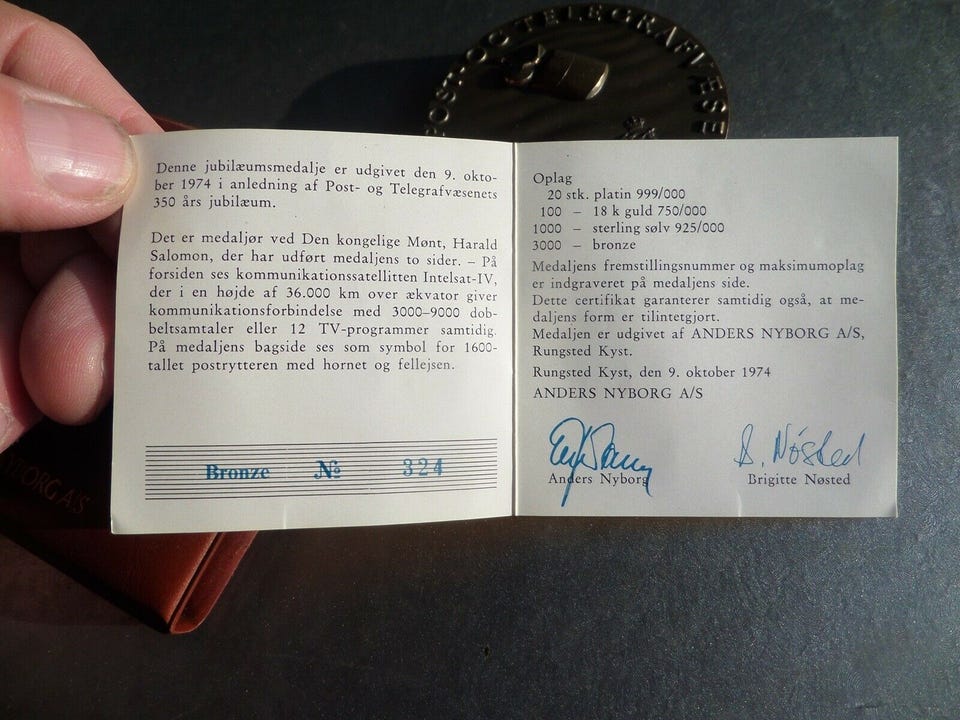 POST- OG TELEGRAFVÆSE
Denne jubilæumsmedalje er udgivet den 9. okto-
ber 1974 i anledning af Post- og Telegrafvæsenets
350 års jubilæum.
Det er medaljør ved Den kongelige Mønt, Harald
Salomon, der har udført medaljens to sider. – På
forsiden ses kommunikationssatellitten Intelsat-IV,
der i en højde af 36.000 km over ækvator giver
kommunikationsforbindelse med 3000–9000 dob-
beltsamtaler eller 12 TV-programmer samtidig.
På medaljens bagside ses som symbol for 1600-
tallet postrytteren med hornet og fellejsen.
Bronze No 324
Oplag
20 stk. platin 999/000
100 – 18 k guld 750/000
1000 – sterling sølv 925/000
3000 – bronze
Medaljens fremstillingsnummer og maksimumoplag
er indgraveret på medaljens side.
Dette certifikat garanterer samtidig også, at me-
daljens form er tilintetgjort.
Medaljen er udgivet af ANDERS NYBORG A/S,
Rungsted Kyst.
Rungsted Kyst, den 9. oktober 1974
ANDERS NYBORG A/S
B. Nøsted
Anders Nyborg Brigitte Nøsted
NYBORG A/S